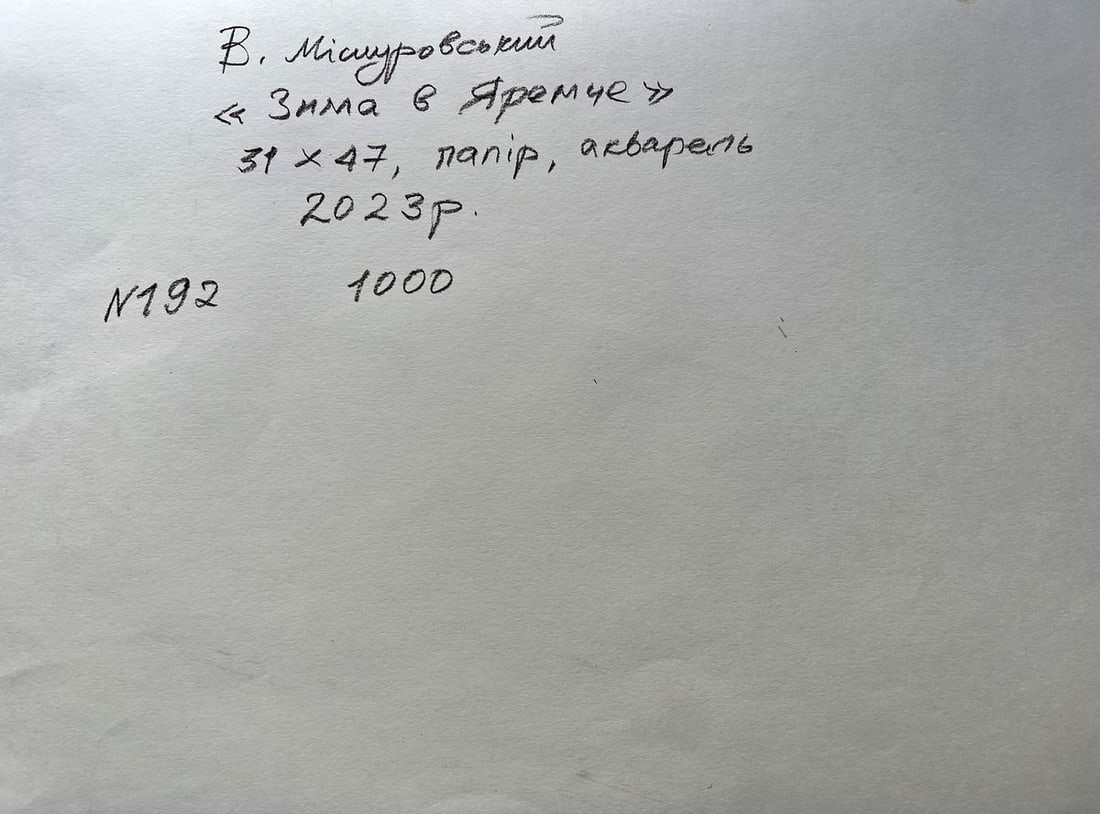 В. Мішуровський
« Зима в Яремче »
31 × 47, папір, акварель
2023р.
N192 1000